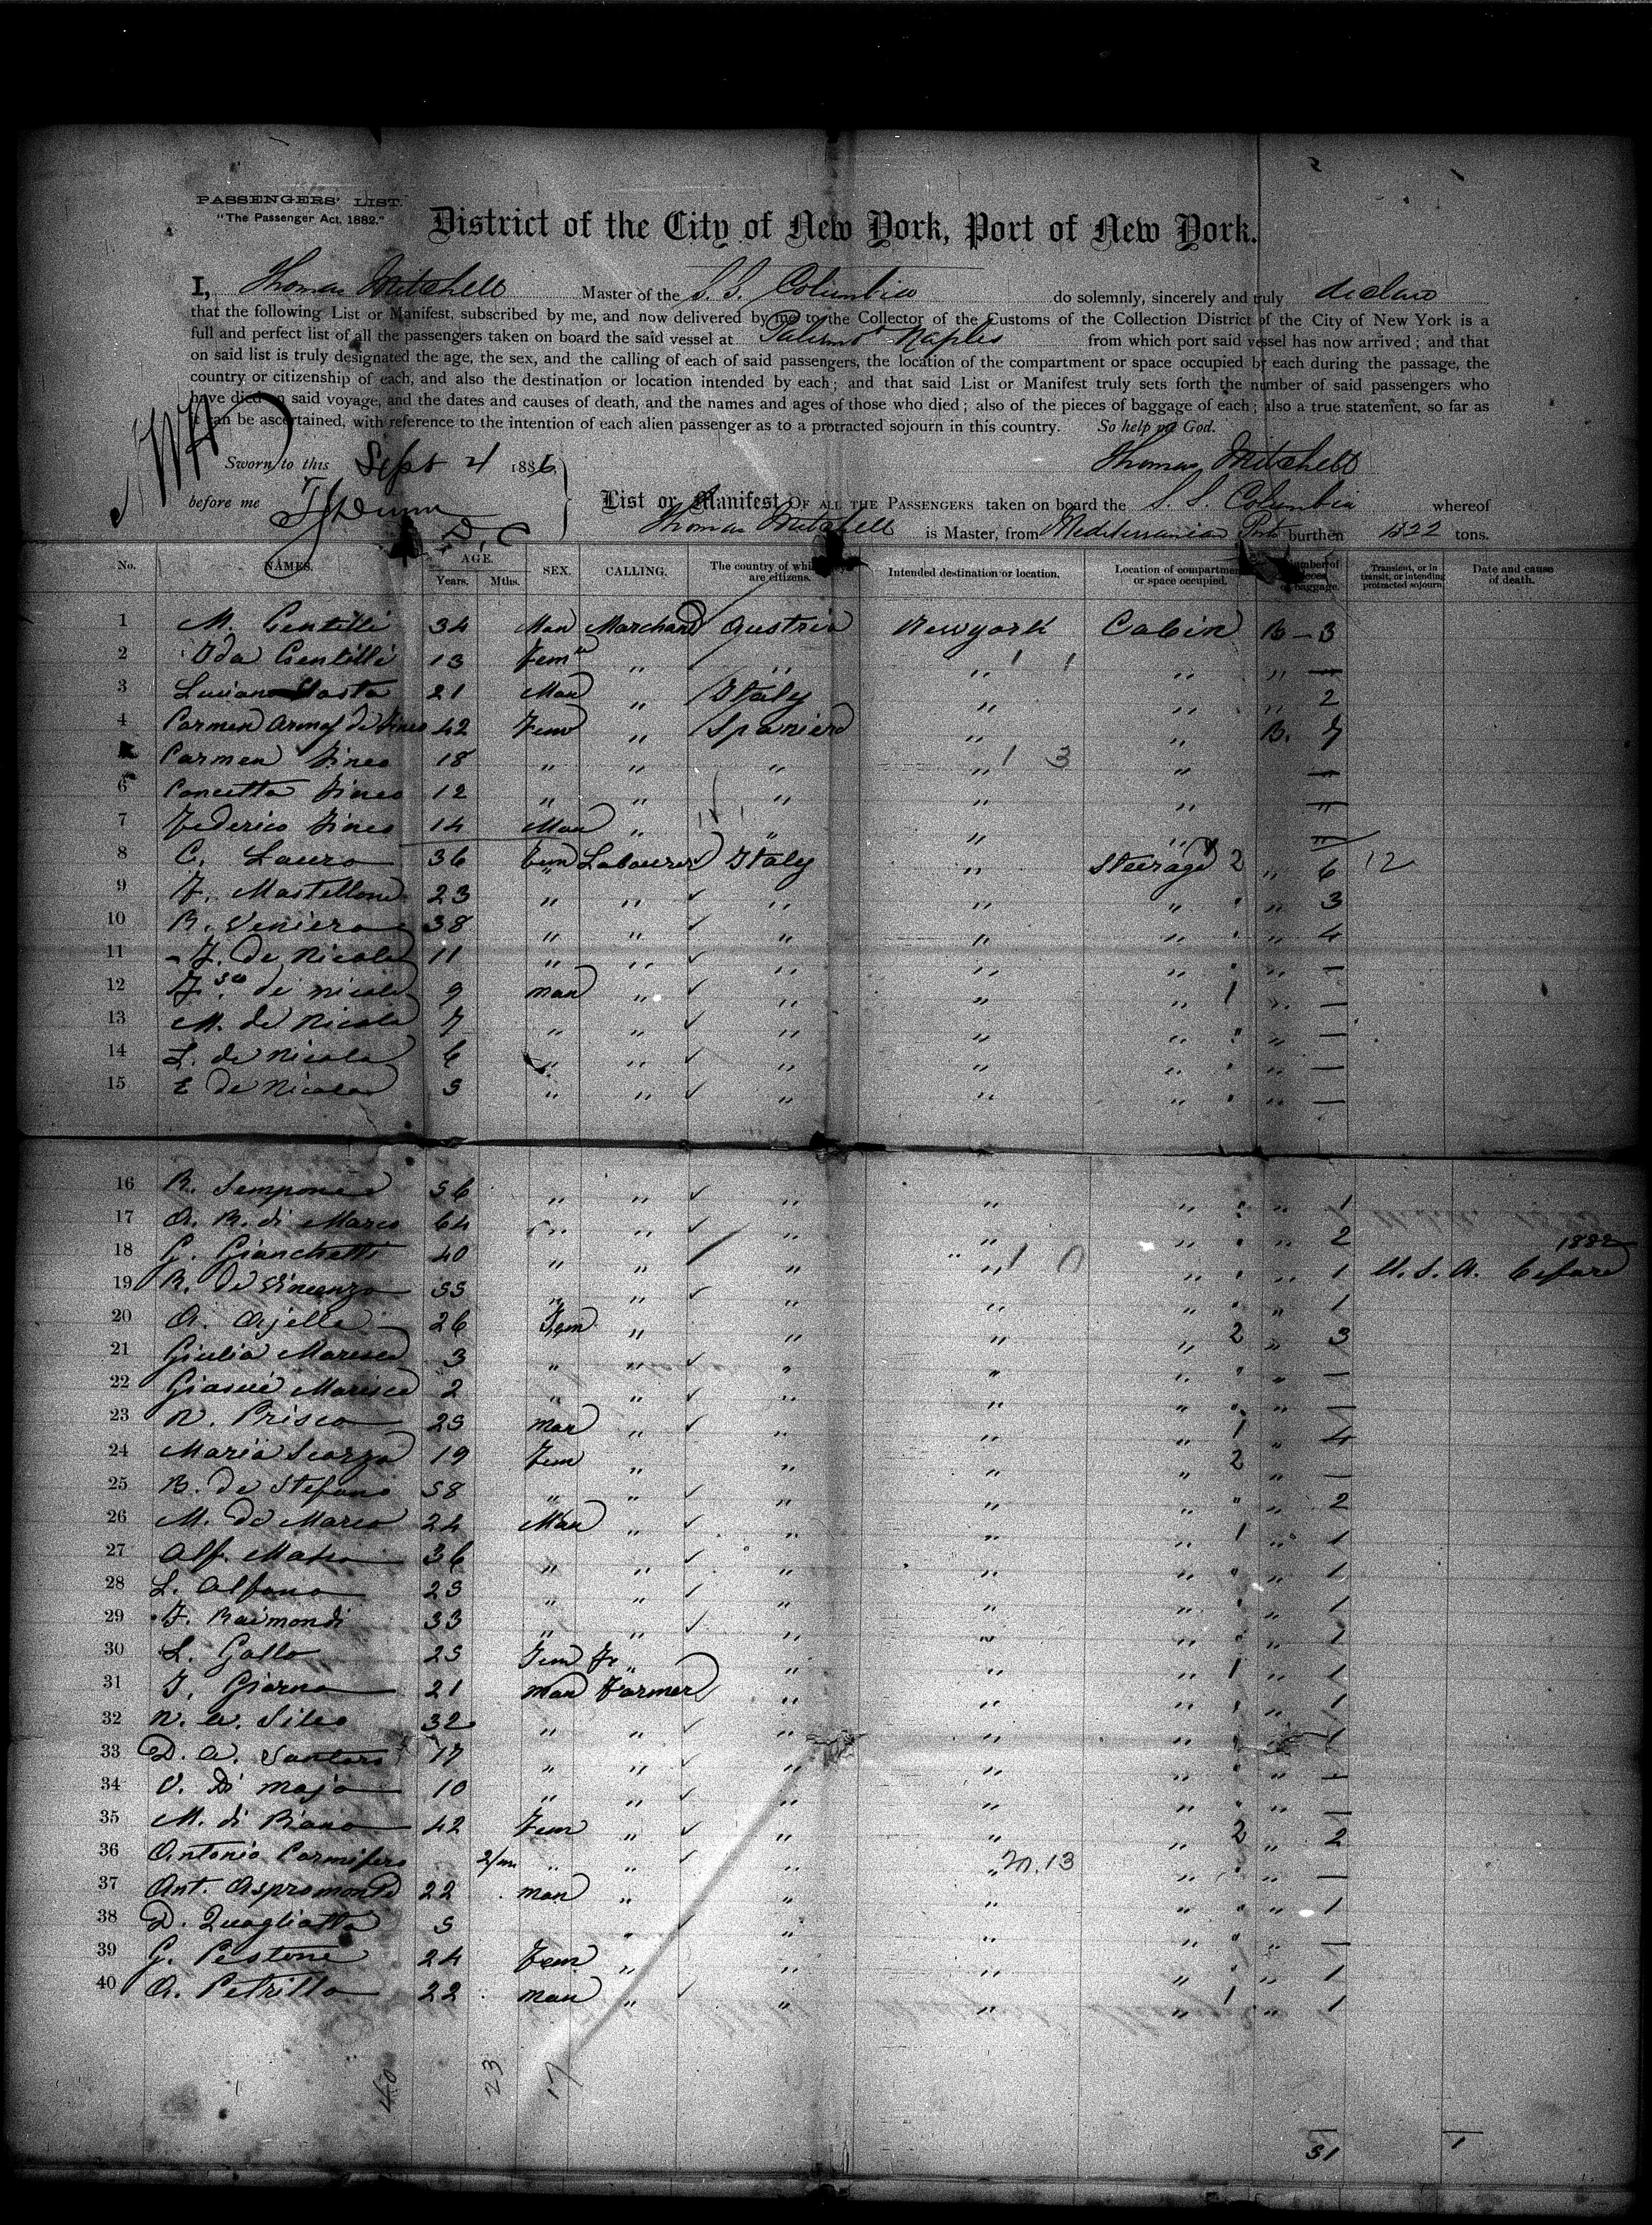 PASSENGERS' LIST.
"The Passenger Act, 1882."
District of the City of New York, Port of New York.
I, Thomas Mitchell Master of the S. S. Columbia do solemnly, sincerely and truly declare
that the following List or Manifest, subscribed by me, and now delivered by me to the Collector of the Customs of the Collection District of the City of New York is a
full and perfect list of all the passengers taken on board the said vessel at Palermo & Naples from which port said vessel has now arrived; and that
on said list is truly designated the age, the sex, and the calling of each of said passengers, the location of the compartment or space occupied by each during the passage, the
country or citizenship of each, and also the destination or location intended by each; and that said List or Manifest truly sets forth the number of said passengers who
have died on said voyage, and the dates and causes of death, and the names and ages of those who died; also of the pieces of baggage of each; also a true statement, so far as
can be ascertained, with reference to the intention of each alien passenger as to a protracted sojourn in this country. So help me God.
Sworn to this Sept 4 1886 Thomas Mitchell
before me D. C
List or Manifest OF ALL THE PASSENGERS taken on board the S. S. Columbia whereof
Thomas Mitchell is Master, from Mediterranean Ports burthen tons.
No. NAMES. AGE. Years. Mths. SEX. CALLING. The country of which they are citizens. Intended destination or location. Location of compartment or space occupied. Number of pieces of baggage. Transient, or in transit, or intending protracted sojourn. Date and cause of death.
1 M. Gentilli 34 Man Marchand Austria Newyork Cabin B - 3
2 Ida Gentilli 13 Fem " " " " " —
3 Luciano 21 Man " Italy " " " 2
4 Carmen de Pineo 42 Fem " Spanien " " B. 7
Carmen Pineo 18 " " " " " —
6 Concetta Pineo 12 " " " " " "
7 Federico Pineo 14 Man " " " " "
8 C. Lauro 36 Fem Labourer Italy " Steerage 2 " 6 12
9 F. Mastellone 23 " " " " " " " 3
10 R. Veniero 38 " " " " " " " 4
11 F. de Nicola 11 " " " " " " " —
12 F.sco de Nicola 9 man " " " " 1 " —
13 M. de Nicola 7 " " " " " " " —
14 L. de Nicola 6 " " " " " " " —
15 E de Nicola 5 " " " " " " " —
16 R. Sempone 56 " " " " " " " 1
17 A. R. di Marco 64 " " " " " " " 2
18 G. Gianchetti 40 " " " " " " " 1 U.S.A. before 1882
19 R. de Vincenzo 55 " " " " " " " 1
20 A. Ajello 26 Fem " " " " 2 " 3
21 Giulia Maresca 3 " " " " " " " —
22 Giosué Maresca 2 " " " " " " " —
23 N. Prisco 25 man " " " " 1 " 4
24 Maria Scarza 19 Fem " " " " 2 " —
25 B. de Stefano 58 " " " " " " " 2
26 M. De Marco 24 Man " " " " 1 " 1
27 Alf. 36 " " " " " " " 1
28 L. Alfano 25 " " " " " " " 1
29 F. Raimondi 33 " " " " " " " 1
30 L. Gallo 25 Fem " " " " 1 " 1
31 Giorno 21 man Farmer " " " " " 1
32 N. A. Sileo 32 " " " " " " " 1
33 D. A. Santoro 17 " " " " " " " —
34 V. Di Majo 10 " " " " " " " —
35 M. di Biano 42 Fem " " " " 2 " 2
36 Antonio 2/m " " " " " " " —
37 Ant. Aspromonte 22 man " " " " " " 1
38 D. Quagliatta 5 " " " " " " —
39 G. Pestone 24 Fem " " " " " " 1
40 A. Petrillo 22 man " " " " 1 " 1
40 23 17
51 1